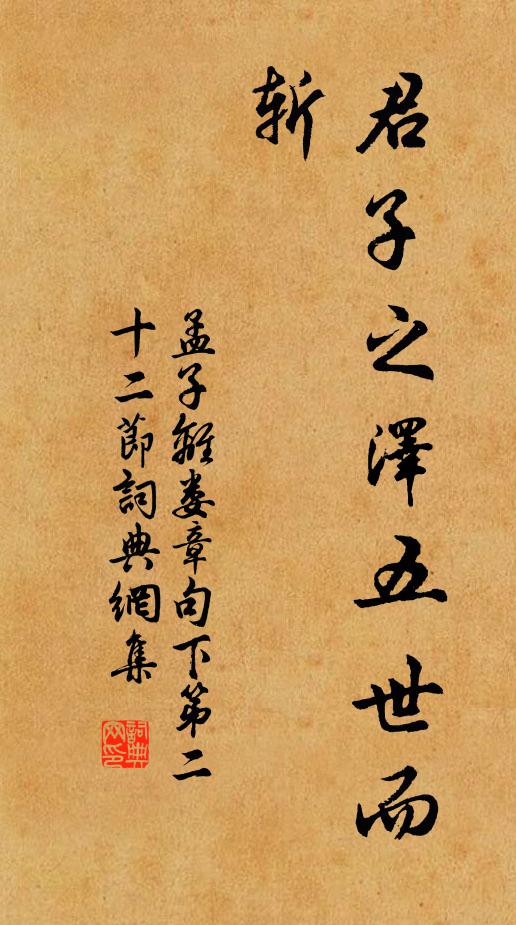 君子之澤五世而
斬
孟子離娄章句下第二
十二節詞典網集
詞典
网印